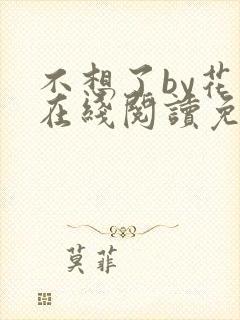 不想了by花
在綫閱讀免
莫菲